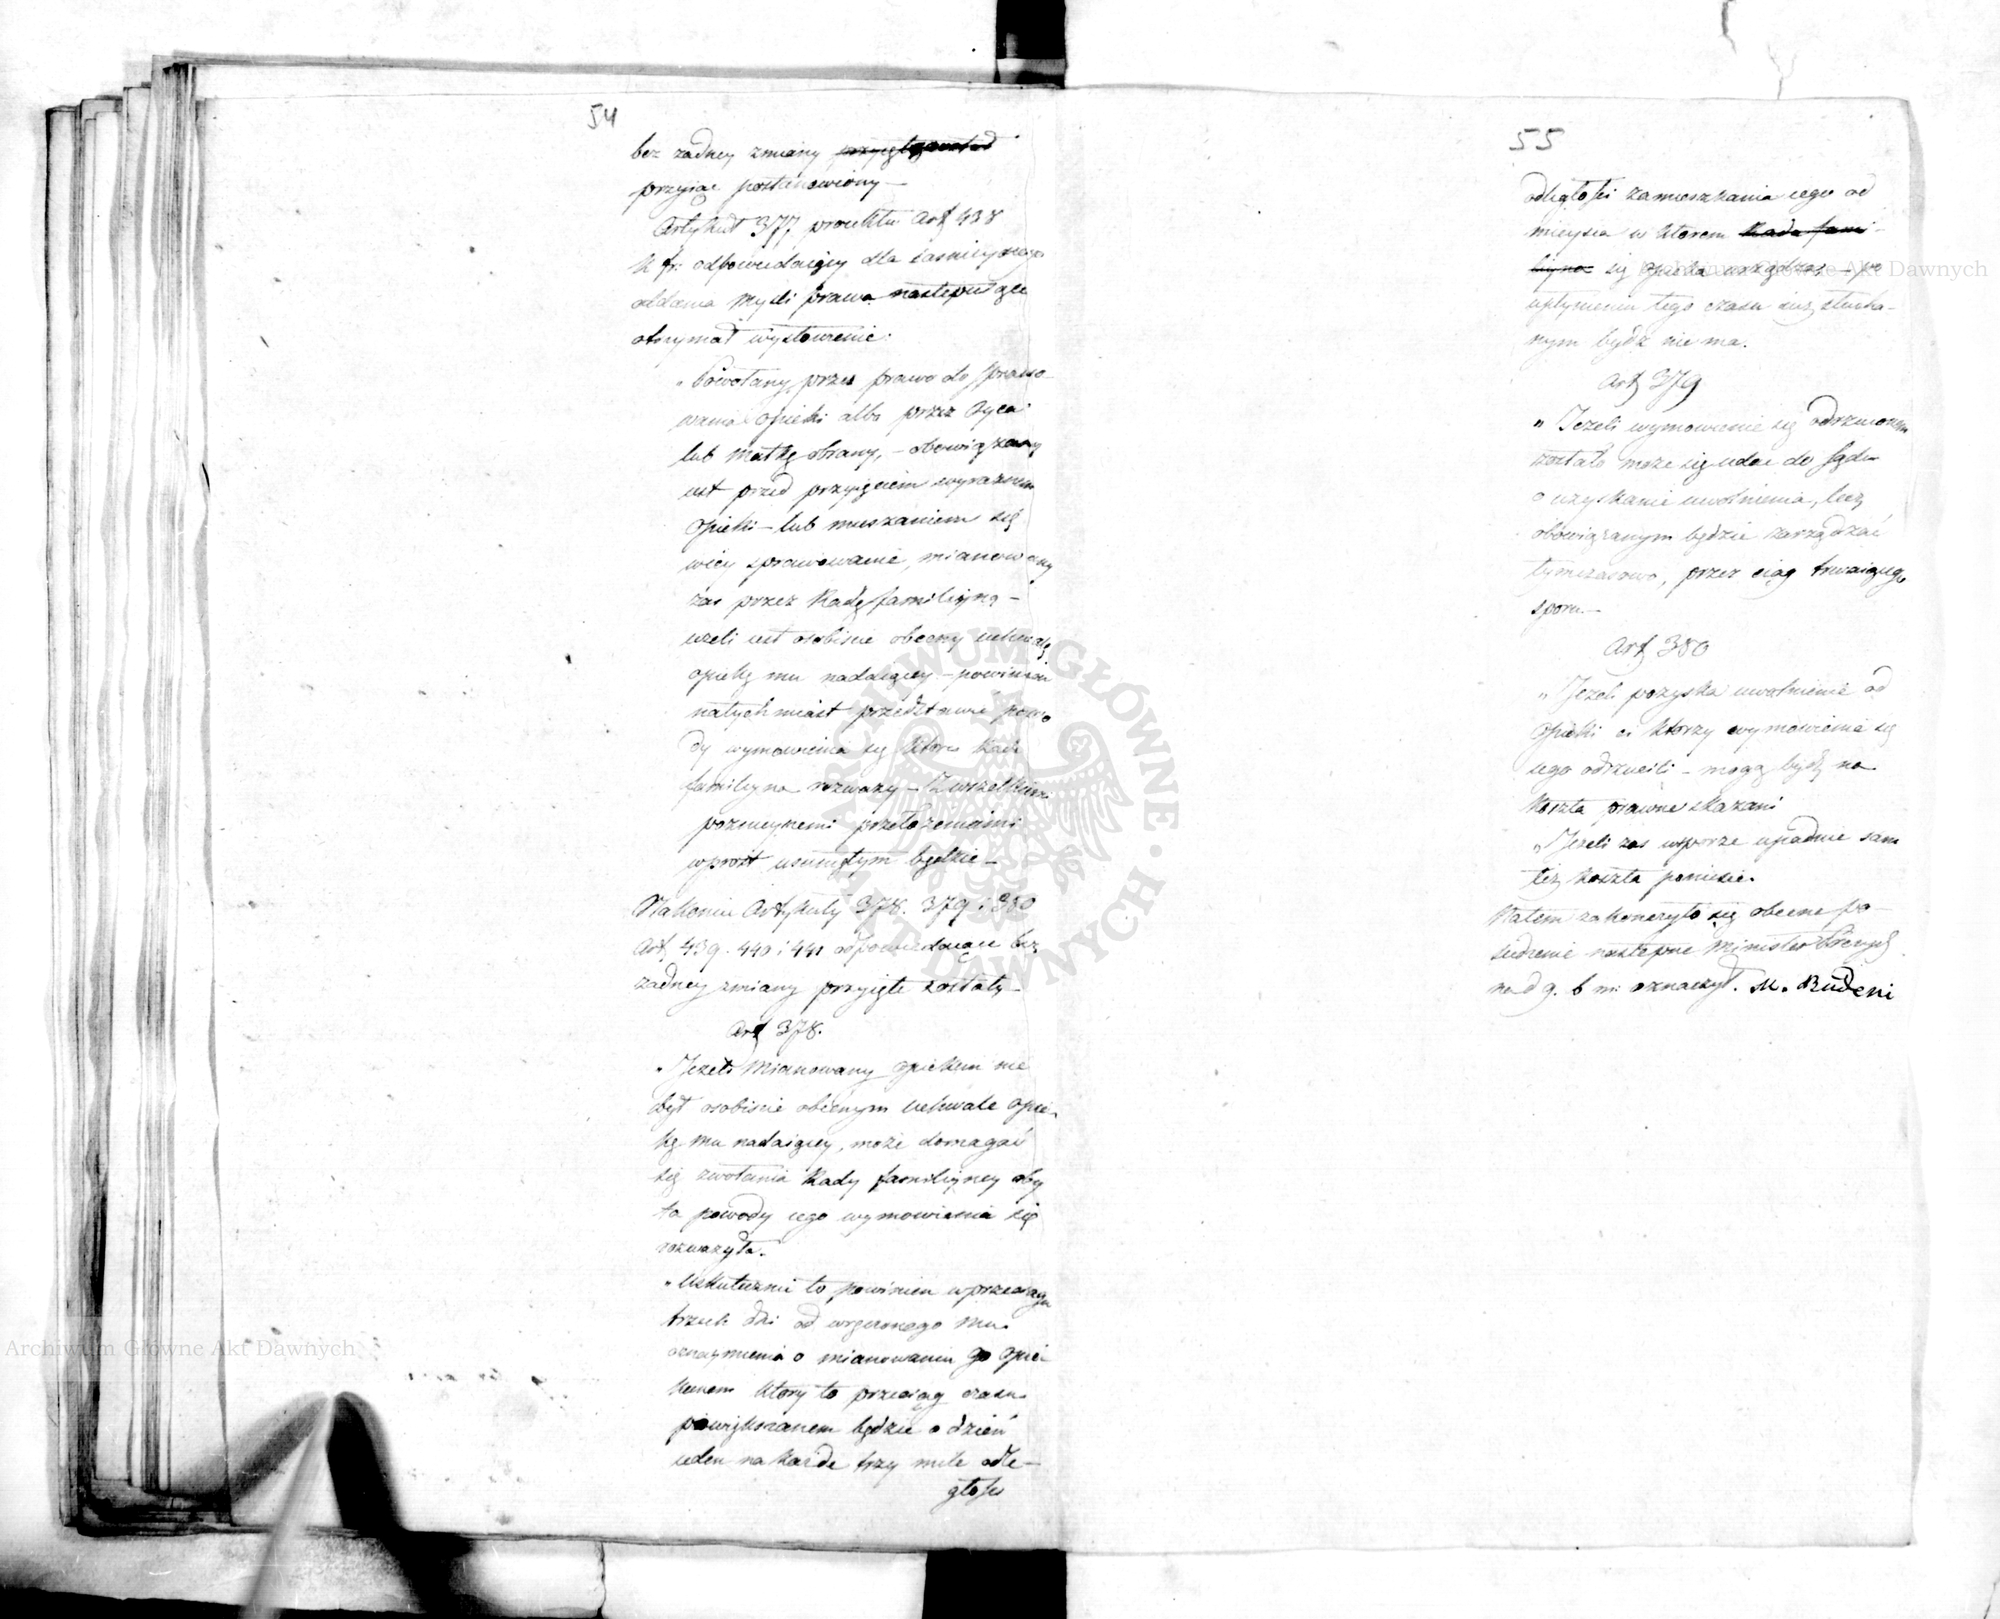 54
bez żadney zmiany przyięty został
przyiąć postanowiony —
Artykuł 377 proiektu Art 438
K fr: odpowiedaiący dla iaśnieyszego
oddania myśli prawa następuiące
otrzymał wysłowienie:
„Powołany przez prawo do sprawo-
wania opieki albo przez Oyca
lub Matkę obrany, — obowiązany
iest przed przyięciem wyraznem
opieki — lub mieszaniem się
w iey sprawowanie, mianowany
zaś przez Radę familiyną —
ieżeli iest osobiście obecny uchwale
opiekę mu nadaiącey — powinien
natychmiast przedstawić powo
dy wymowienia się które Rada
familiyna rozważy — Z wszelkiemi
poznieyszemi przełożeniami
wprost usuniętym będzie —
Nakoniec Artykuły 378. 379 i 380
Art. 439. 440 i 441 odpowiedaiące bez
żadney zmiany przyięte zostały —
Art 378.
„Jeżeli Mianowany opiekun nie
był osobiście obecnym uchwale opie-
kę mu nadaiącey, może domagać
się zwołania Rady familiyney aby
ta powody iego wymowienia się
rozważyła.
„Uskutecznić to powinien w przeciągu
trzech dni od wręczonego mu
oznaymienia o mianowaniu go opie-
kunem który to przeciąg czasu
powiększonem będzie o dzień
ieden na każde trzy mile odle-
głości
55
odległości zamieszkania iego od
mieysca w ktorem Rada fami-
liyna się opieka urządza, — po
upłynieniu tego czasu iuż słucha-
nym bydź nie ma.
Art 379
„Jeżeli wymowienie się odrzuconem
zostało może się udać do Sądu
o uzyskanie uwolnienia, lecz
obowiązanym będzie zarządzać
tymczasowo, przez ciąg trwaiącego
sporu. —
Art 380
„Jeżeli pozyska uwolnienie od
Opieki ci ktorzy wymowienie się
iego odrzucili — mogą bydź na
koszta prawne skazani
„Jeżeli zaś w sporze upadnie sam
też koszta poniesie.
Natem zakończyło się obecne po-
siedzenie następne Minister
na d 9. b m: oznaczył. M.